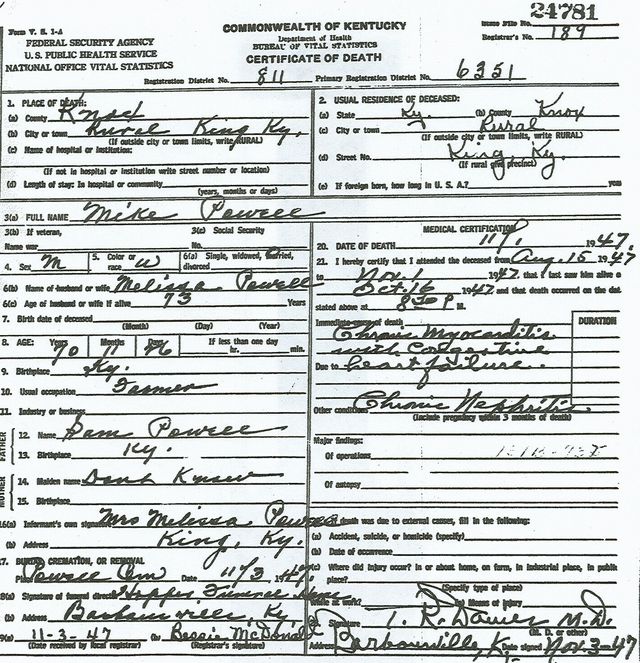 24781
Form V. S. 1-A
COMMONWEALTH OF KENTUCKY
State File No.
Registrar's No. 189
FEDERAL SECURITY AGENCY
U. S. PUBLIC HEALTH SERVICE
NATIONAL OFFICE VITAL STATISTICS
Department of Health
BUREAU OF VITAL STATISTICS
CERTIFICATE OF DEATH
Registration District No. 811 Primary Registration District No. 6351
1. PLACE OF DEATH:
(a) County Knox
(b) City or town Rural King Ky.
(If outside city or town limits, write RURAL)
(c) Name of hospital or institution:
(If not in hospital or institution write street number or location)
(d) Length of stay: In hospital or community
(years, months or days)
2. USUAL RESIDENCE OF DECEASED:
(a) State Ky. (b) County Knox
(c) City or town Rural
(If outside city or town limits, write RURAL)
(d) Street No. King Ky.
(If rural give precinct)
(e) If foreign born, how long in U. S. A.? years
3(a) FULL NAME Mike Powell
3(b) If veteran, 3(c) Social Security
Name war No.
4. Sex M 5. Color or race W 6(a) Single, widowed, married, divorced
6(b) Name of husband or wife Melissa Powell
6(c) Age of husband or wife if alive 73 Years
7. Birth date of deceased
(Month) (Day) (Year)
8. AGE: Years Months Days If less than one day
70 11 26 hr. min.
9. Birthplace Ky.
10. Usual occupation Farmer
11. Industry or business
FATHER
12. Name Sam Powell
13. Birthplace Ky.
MOTHER
14. Maiden name Dont Know
15. Birthplace
16(a) Informant's own signature Mrs Melissa Powell
(b) Address King, Ky.
17. BURIAL, CREMATION, OR REMOVAL
Place Powell Cem Date 11/3 1947
18(a) Signature of funeral director Hopper Funeral Home
(b) Address Barbourville, Ky
19(a) 11-3-47 (b) Bessie McDonald
(Date received by local registrar) (Registrar's signature)
MEDICAL CERTIFICATION
20. DATE OF DEATH 11/1, 1947
21. I hereby certify that I attended the deceased from Aug. 15 1947
to Nov. 1 1947 that I last saw him alive o
Oct. 16 1947 and that death occurred on the dat
stated above at 8:30 P. M.
DURATION
Immediate cause of death
Chronic Myocarditis
with Congestive
Due to heart failure.
Other conditions Chronic Nephritis
(Include pregnancy within 3 months of death)
Major findings:
Of operations
Of autopsy
If death was due to external causes, fill in the following:
(a) Accident, suicide, or homicide (specify)
(b) Date of occurrence
(c) Where did injury occur? in or about home, on farm, in industrial place, in public
place?
(Specify type of place)
While at work? (e) Means of injury
Signature M.D.
(M. D. or other)
Address Barbourville, K. Date signed Nov. 3-47